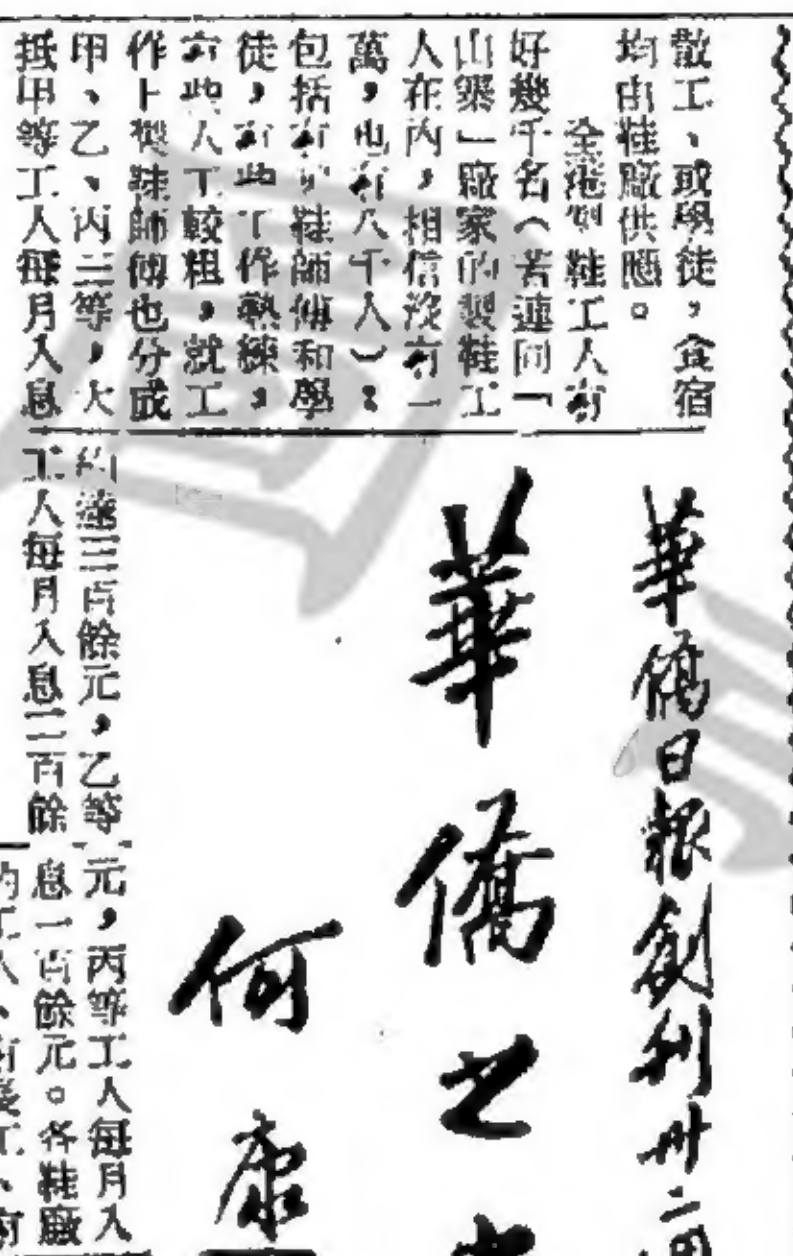 散工、或學徒，食宿
均由鞋廠供應。
全港製鞋工人有
好幾千名（若連同「
山寨」廠家的製鞋工
人在內，相信沒有一
萬，也有八千人）：
包括有鞋師傅和學
徒，有些工作熟練，
有些人工較粗，就工
作上製鞋師傅也分成
甲、乙、丙三等，大
抵甲等工人每月入息
約達三百餘元，乙等
工人每月入息二百餘
元，丙等工人每月入
息一百餘元。各鞋廠
的工人、有長工、有
華僑日報創刊卅二周
華僑之
何康